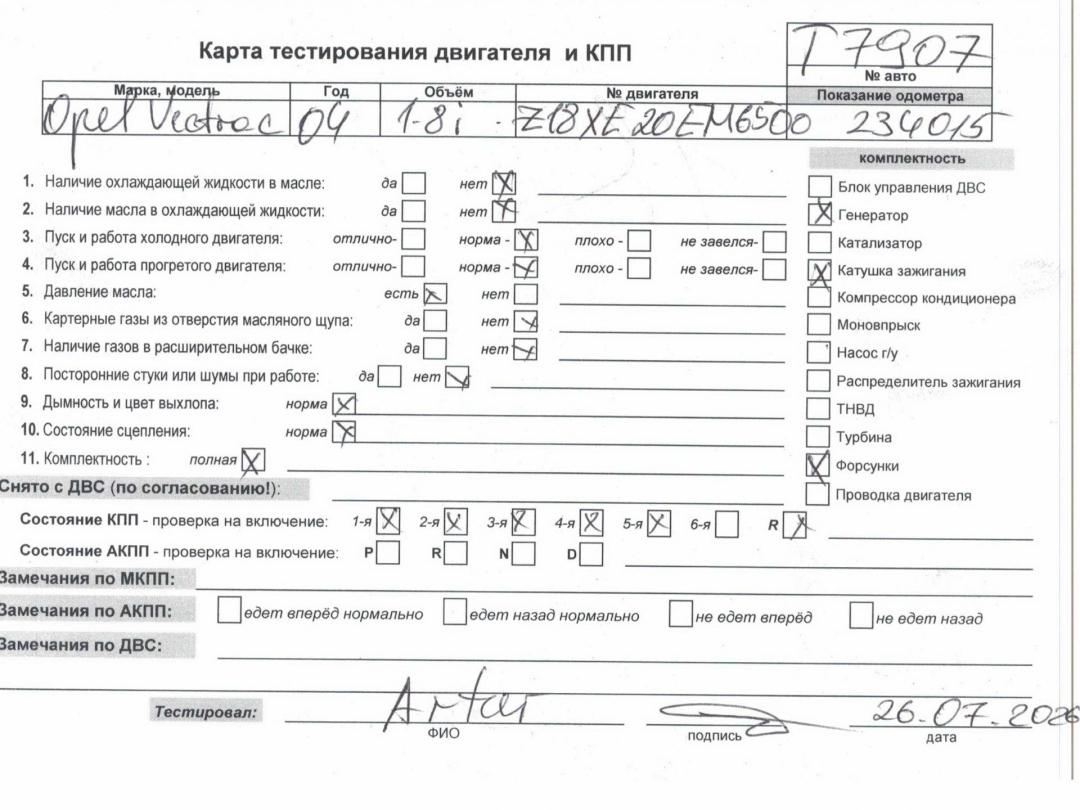 Карта тестирования двигателя и КПП
T7907
№ авто
Марка, модель Год Объём № двигателя Показание одометра
Opel Vectrac 04 1.8i Z18XE20EM6500 234015
комплектность
1. Наличие охлаждающей жидкости в масле: да нет X
2. Наличие масла в охлаждающей жидкости: да нет X
3. Пуск и работа холодного двигателя: отлично- норма - X плохо - не завелся-
4. Пуск и работа прогретого двигателя: отлично- норма - X плохо - не завелся-
5. Давление масла: есть X нет
6. Картерные газы из отверстия масляного щупа: да нет X
7. Наличие газов в расширительном бачке: да нет X
8. Посторонние стуки или шумы при работе: да нет X
9. Дымность и цвет выхлопа: норма X
10. Состояние сцепления: норма X
11. Комплектность : полная X
Блок управления ДВС
X Генератор
Катализатор
X Катушка зажигания
Компрессор кондиционера
Моновпрыск
Насос г/у
Распределитель зажигания
ТНВД
Турбина
X Форсунки
Проводка двигателя
Снято с ДВС (по согласованию!):
Состояние КПП - проверка на включение: 1-я X 2-я X 3-я X 4-я X 5-я X 6-я R X
Состояние АКПП - проверка на включение: P R N D
Замечания по МКПП:
Замечания по АКПП: едет вперёд нормально едет назад нормально не едет вперёд не едет назад
Замечания по ДВС:
Тестировал: Artur 26.07.2026
ФИО подпись дата